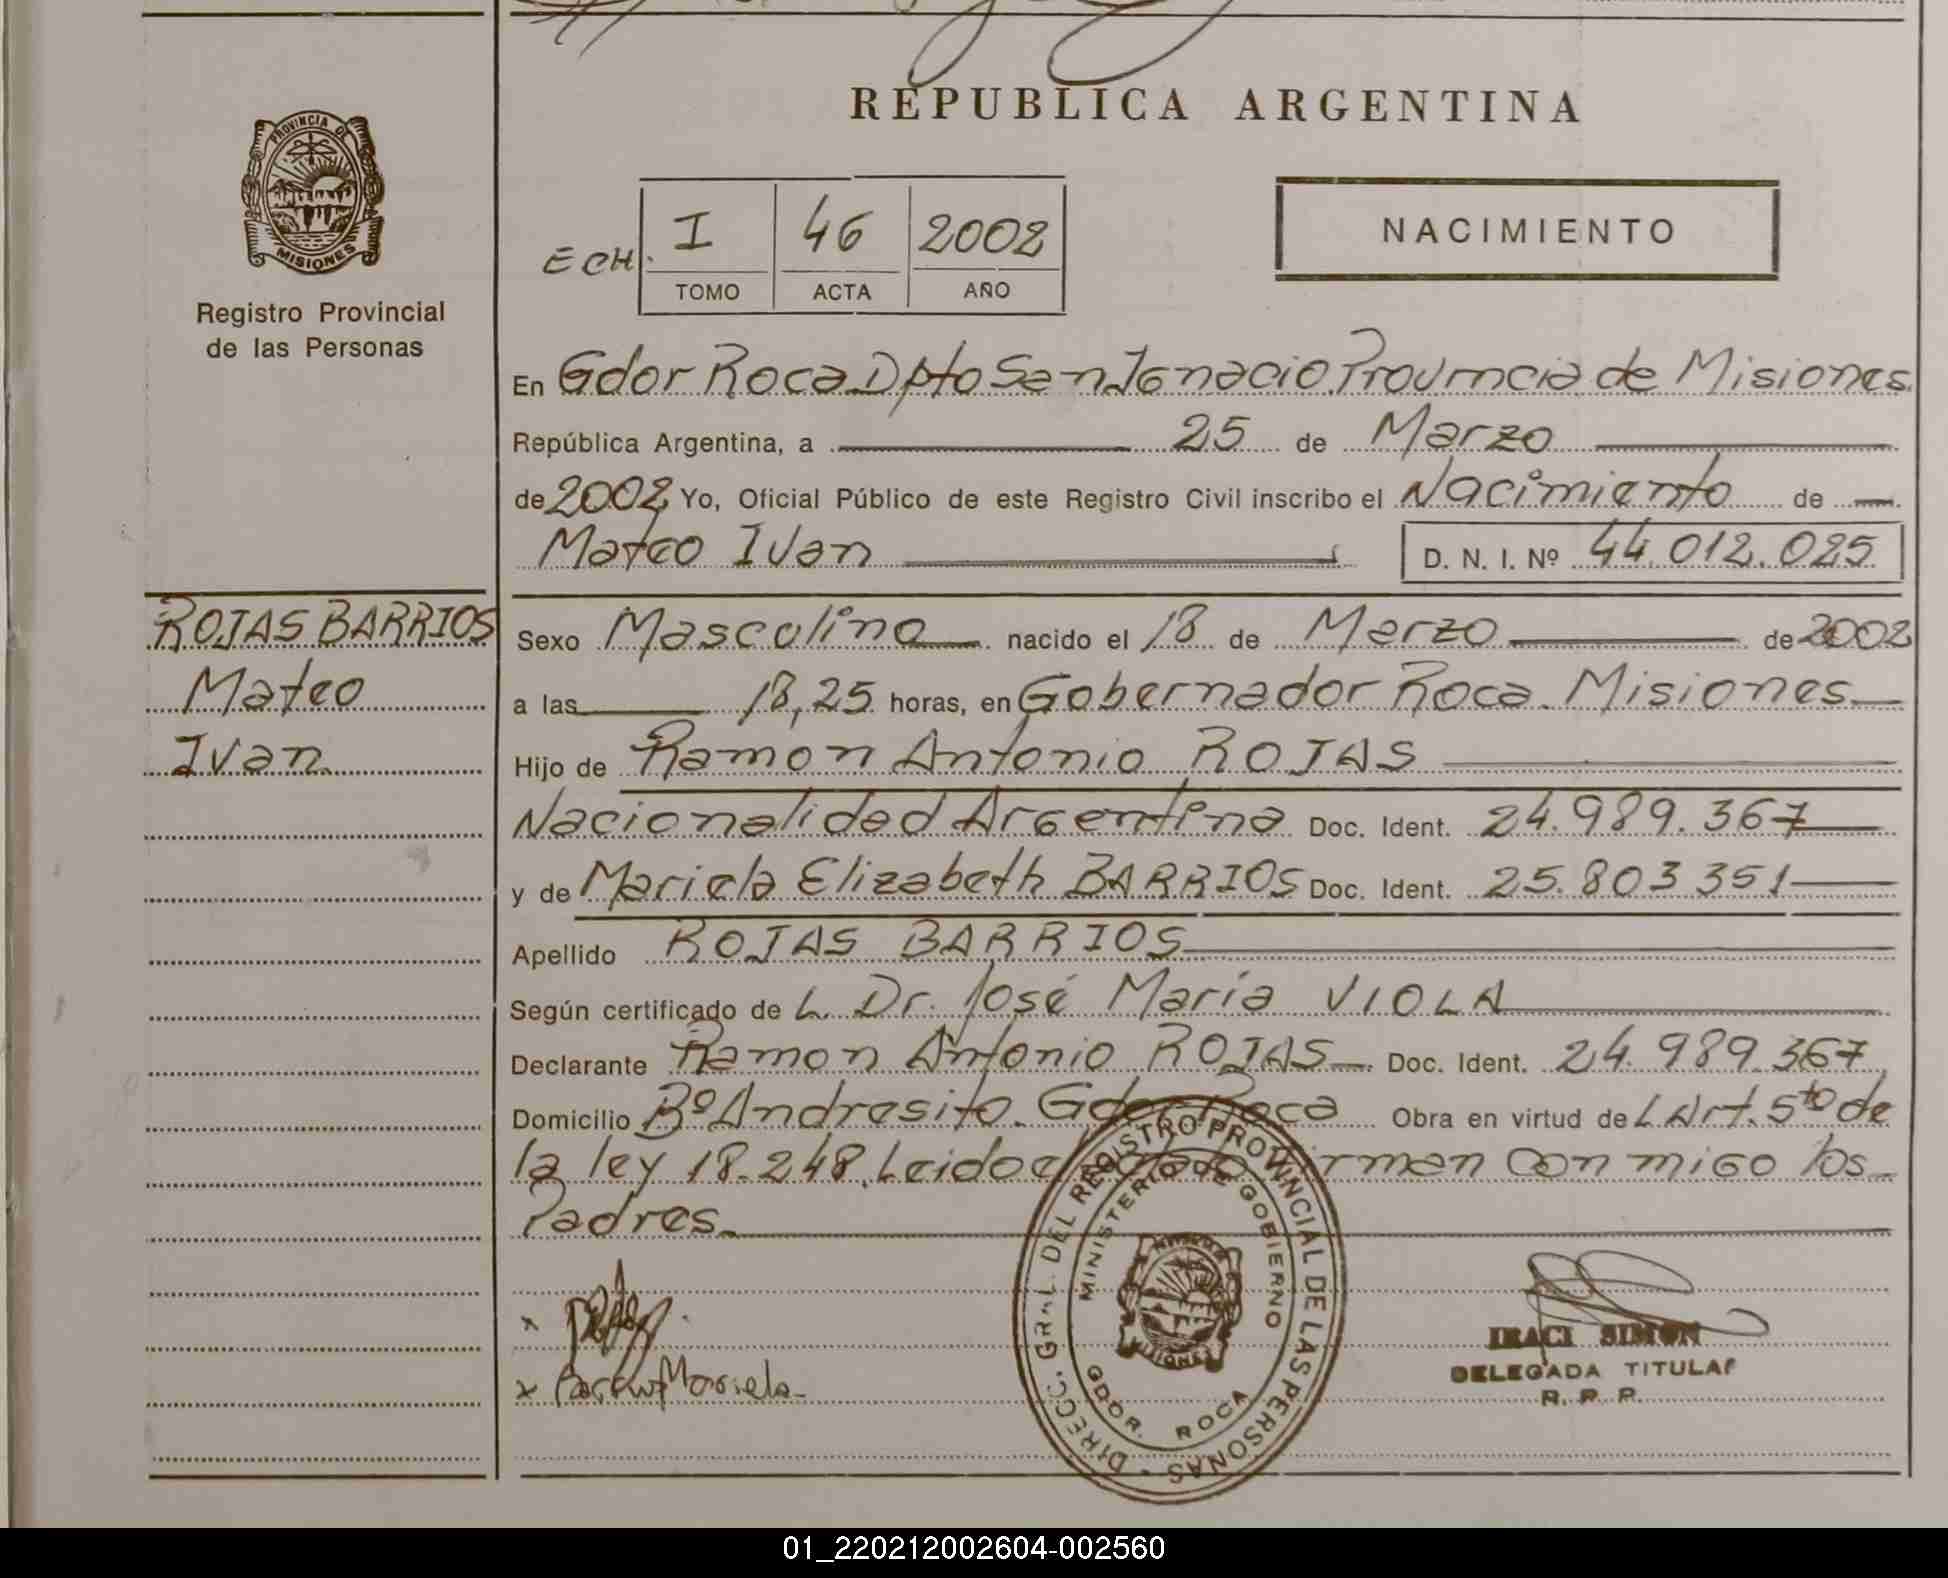 REPUBLICA ARGENTINA
PROVINCIA DE
MISIONES
Registro Provincial
de las Personas
ECH. I 46 2002
TOMO ACTA AÑO
NACIMIENTO
En Gdor Roca Dpto San Ignacio Provincia de Misiones
República Argentina, a 25 de Marzo
de 2002 Yo, Oficial Público de este Registro Civil inscribo el Nacimiento de
Mateo Ivan D. N. I. Nº 44.012.025
ROJAS BARRIOS
Mateo
Ivan
Sexo Masculino nacido el 18 de Marzo de 2002
a las 18,25 horas, en Gobernador Roca. Misiones
Hijo de Ramon Antonio ROJAS
Nacionalidad Argentina Doc. Ident. 24.989.367
y de Mariela Elizabeth BARRIOS Doc. Ident. 25.803.351
Apellido ROJAS BARRIOS
Según certificado de L. Dr. José María VIOLA
Declarante Ramon Antonio ROJAS Doc. Ident. 24.989.367
Domicilio Bº Andresito. Gdor Roca Obra en virtud de L Art. 5to de
la ley 18.248. Leido el acta firman con migo los
Padres
x
x Mariela
DIRECC. GRAL. DEL REGISTRO PROVINCIAL DE LAS PERSONAS
MINISTERIO DE GOBIERNO
MISIONES
GDOR. ROCA
IRACI SIMON
DELEGADA TITULAR
R. P. P.
01_220212002604-002560